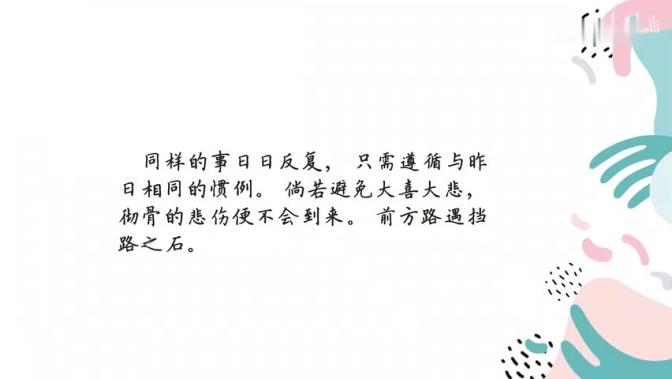 同样的事日日反复， 只需遵循与昨
日相同的惯例。 倘若避免大喜大悲，
彻骨的悲伤便不会到来。 前方路遇挡
路之石。